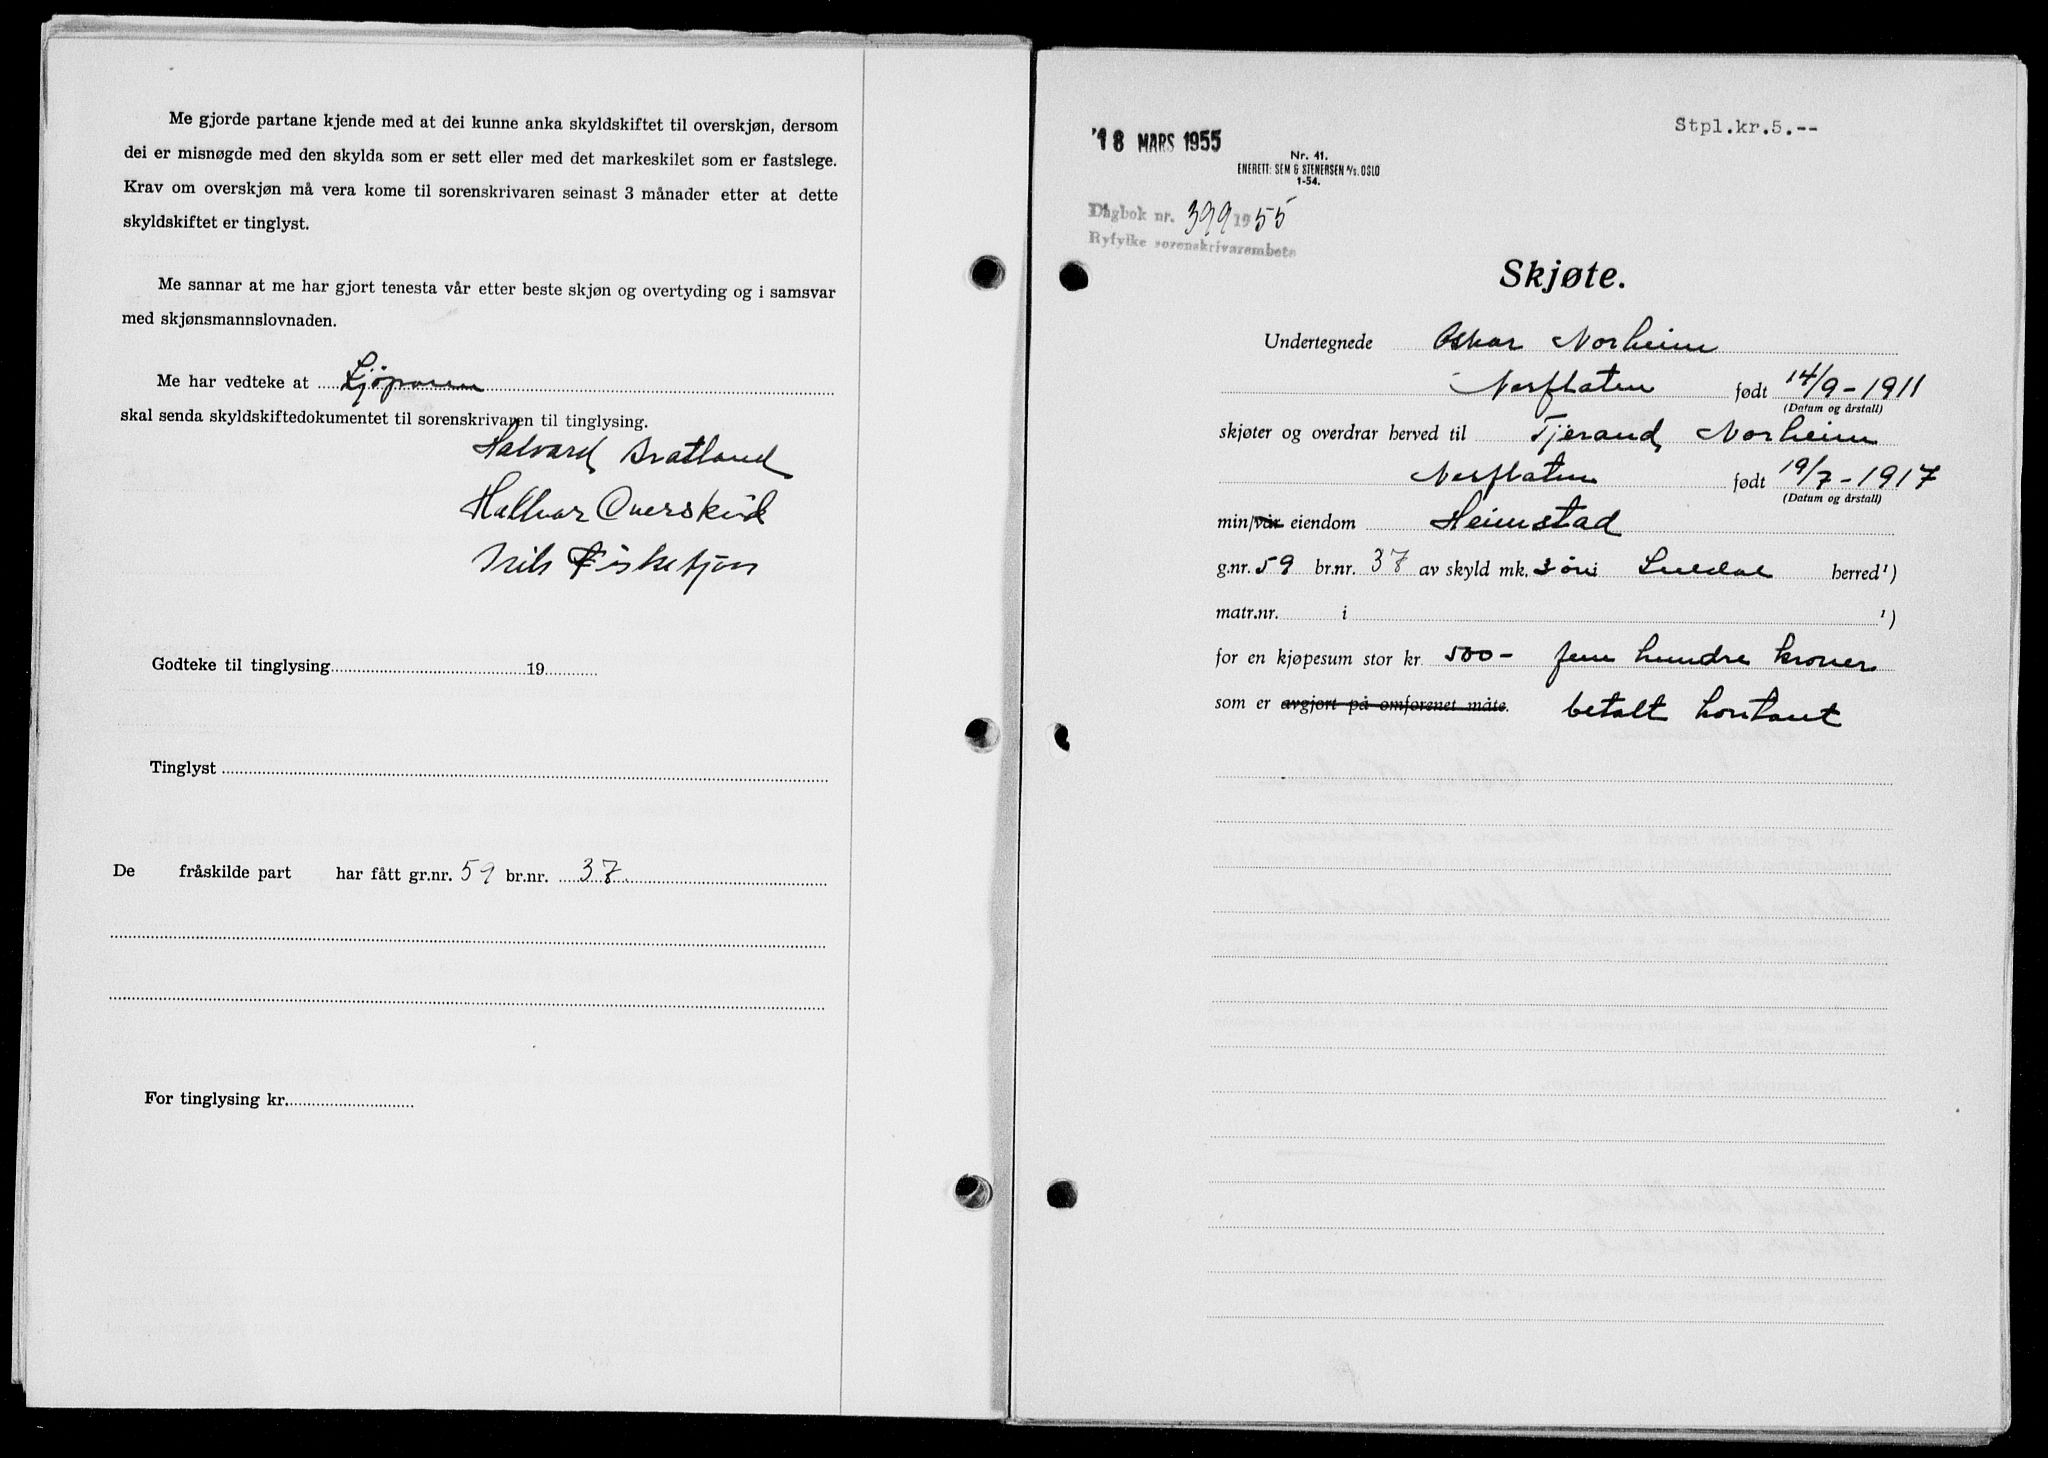 Me gjorde partane kjende med at dei kunne anka skyldskiftet til overskjøn, dersom
dei er misnøgde med den skylda som er sett eller med det markeskilet som er fastslege.
Krav om overskjøn må vera kome til sorenskrivaren seinast 3 månader etter at dette
skyldskiftet er tinglyst.
Me sannar at me har gjort tenesta vår etter beste skjøn og overtyding og i samsvar
med skjønsmannslovnaden.
Me har vedteke at
skal senda skyldskiftedokumentet til sorenskrivaren til tinglysing.
Halvard Bratland
Hallvar Overskeid
Nils Fisketjøn
Godteke til tinglysing 19
Tinglyst
De fråskilde part har fått gr.nr. 59 br.nr. 37.
For tinglysing kr.
18 MARS 1955
Stpl.kr.5.--
Nr. 41.
ENERETT: SEM & STENERSEN A/S. OSLO
1-54.
Dagbok nr. 399 1955
Ryfylke sorenskrivarembete
Skjøte.
Undertegnede Oskar Norheim
Nesflaten født 14/9-1911
(Datum og årstall)
skjøter og overdrar herved til Tjerand Norheim
Nesflaten født 19/7-1917
(Datum og årstall)
min/vår eiendom Heimstad
g.nr. 59 br.nr. 37 av skyld mk. 3 øre Suldal herred ¹)
matr.nr. i ¹)
for en kjøpesum stor kr. 500- fem hundre kroner
som er avgjort på omforenet måte. betalt kontant